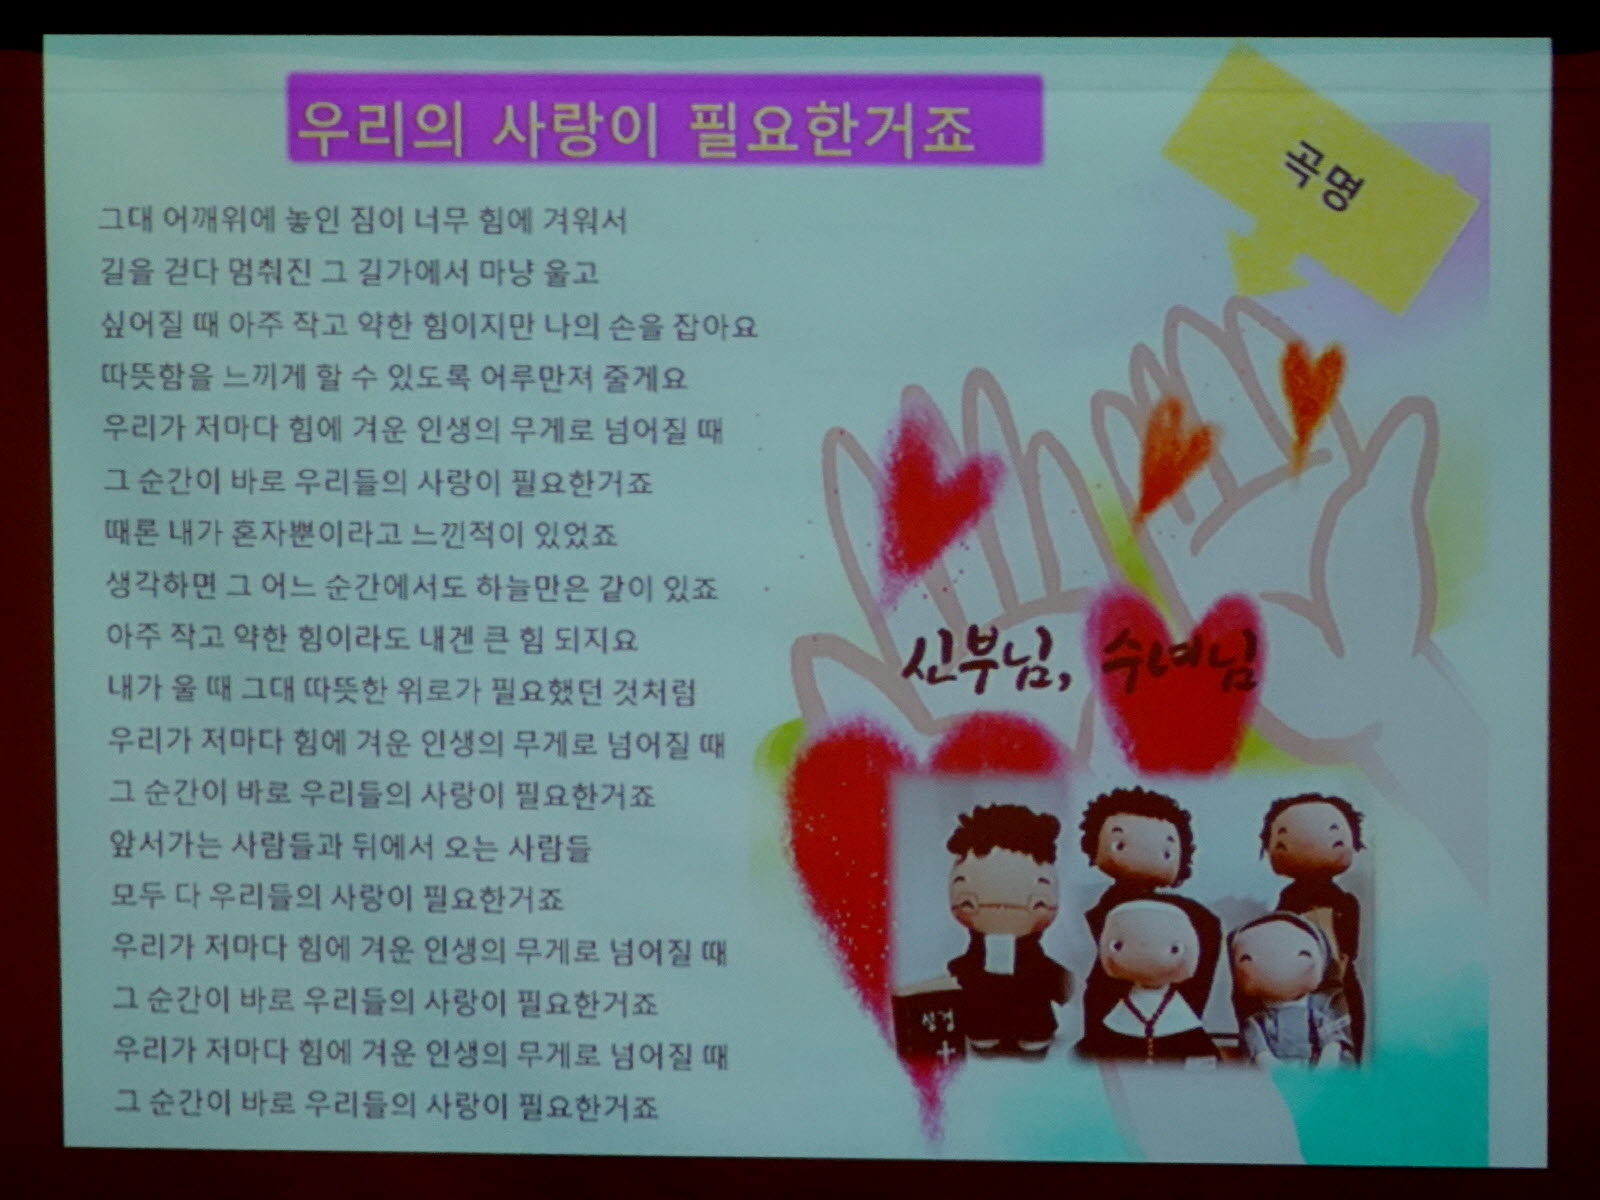 우리의 사랑이 필요한거죠
곡명
그대 어깨위에 놓인 짐이 너무 힘에 겨워서
길을 걷다 멈춰진 그 길가에서 마냥 울고
싶어질 때 아주 작고 약한 힘이지만 나의 손을 잡아요
따뜻함을 느끼게 할 수 있도록 어루만져 줄게요
우리가 저마다 힘에 겨운 인생의 무게로 넘어질 때
그 순간이 바로 우리들의 사랑이 필요한거죠
때론 내가 혼자뿐이라고 느낀적이 있었죠
생각하면 그 어느 순간에서도 하늘만은 같이 있죠
아주 작고 약한 힘이라도 내겐 큰 힘 되지요
내가 울 때 그대 따뜻한 위로가 필요했던 것처럼
우리가 저마다 힘에 겨운 인생의 무게로 넘어질 때
그 순간이 바로 우리들의 사랑이 필요한거죠
앞서가는 사람들과 뒤에서 오는 사람들
모두 다 우리들의 사랑이 필요한거죠
우리가 저마다 힘에 겨운 인생의 무게로 넘어질 때
그 순간이 바로 우리들의 사랑이 필요한거죠
우리가 저마다 힘에 겨운 인생의 무게로 넘어질 때
그 순간이 바로 우리들의 사랑이 필요한거죠
신부님, 수녀님
성경